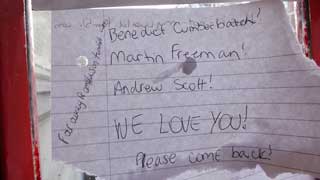 Benedict Cumberbatch!
Martin Freeman!
Andrew Scott!
WE LOVE YOU!
Please come back!